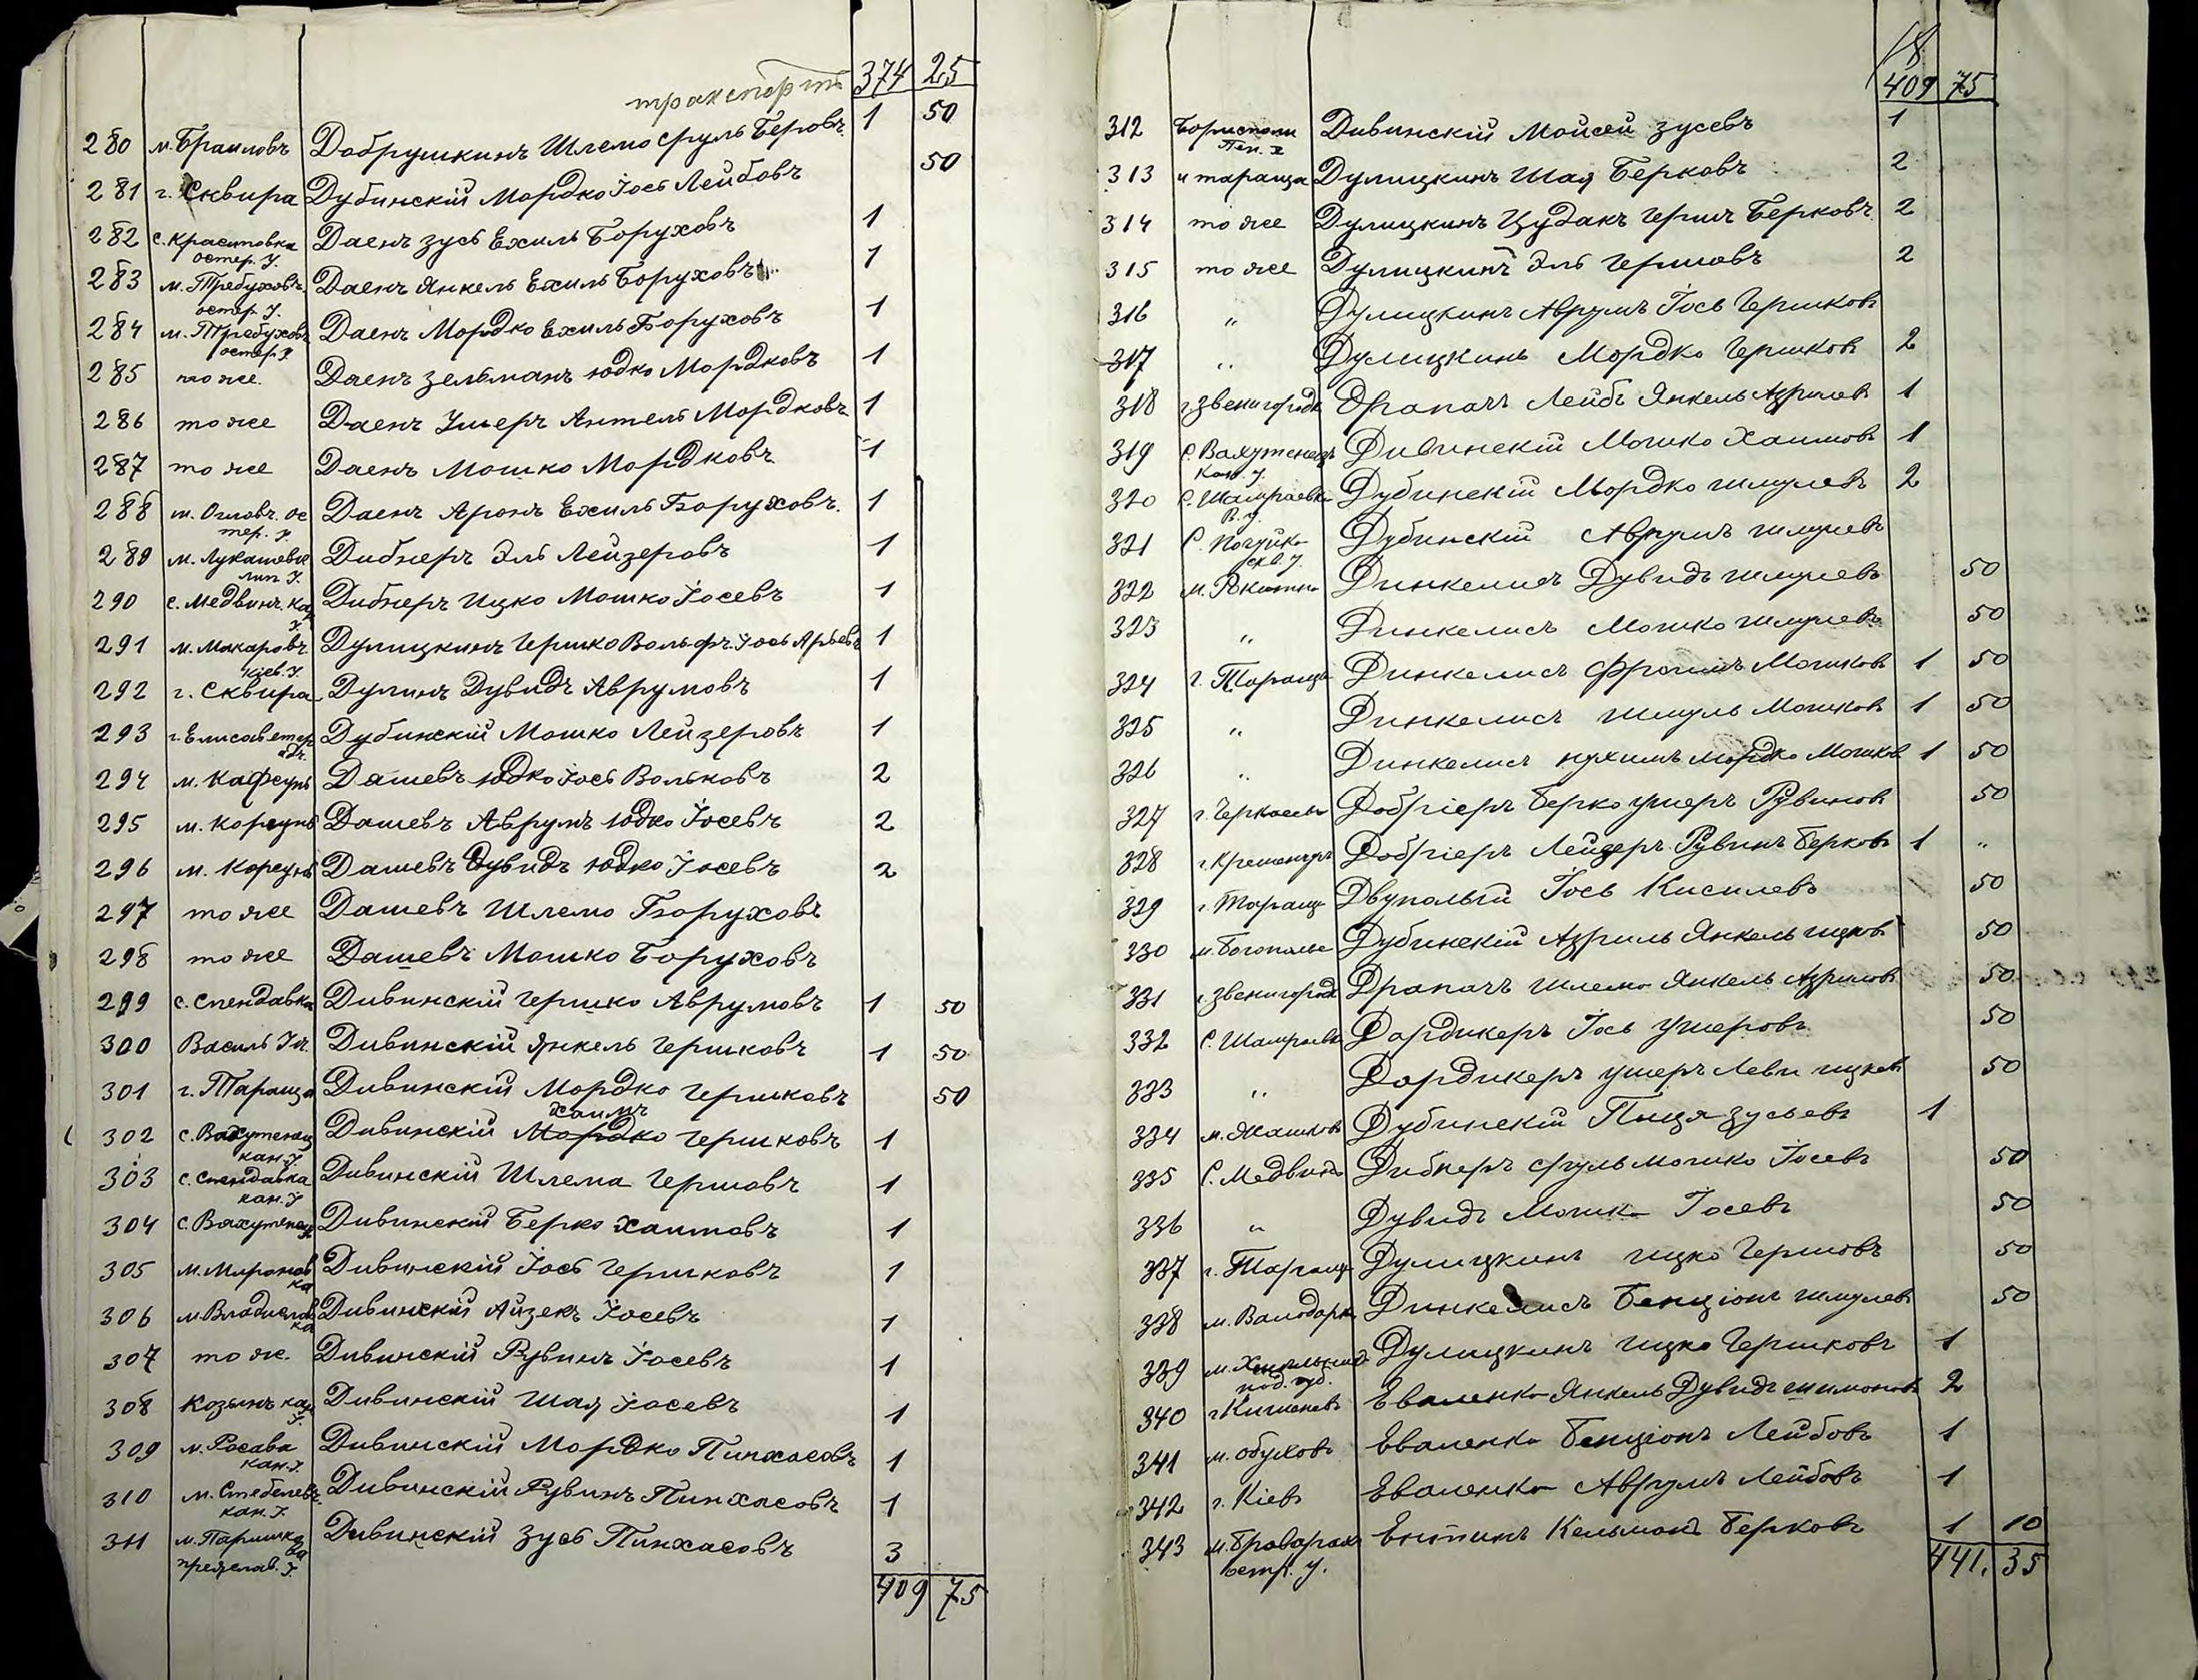 транспортъ 374 25
280 м. Браиловъ Добрушкинъ Шлемо Сруль Беровъ 1 50
281 г. Сквира Дубинскій Мордко Іось Лейбовъ 50
282 с. Красиловка Даенъ Зусь Ехиль Боруховъ 1
остер. у.
283 м. Требуховъ Даенъ Янкель Ехиль Боруховъ 1
остер. у.
284 м. Требуховъ Даенъ Мордко Ехиль Боруховъ 1
остер. у.
285 тоже. Даенъ Зельманъ Юдко Мордковъ 1
286 тоже Даенъ Умеръ Антель Мордковъ 1
287 тоже Даенъ Мошко Мордковъ 1
288 Даенъ Аронъ Ехиль Боруховъ. 1
289 м. Лукашевка Дибнеръ Эль Лейзеровъ 1
лип. у.
290 с. Медвинъ. кан. Дибнеръ Ицко Мошко Іосевъ 1
у.
291 м. Макаровъ Дулицкинъ Гершко Вольфъ. Іось Арьевъ 1
Кіев. у.
292 г. Сквира Дулинъ Дувидъ Аврумовъ 1
293 г. Елисаветгр Дубинскій Мошко Лейзеровъ 1
адъ.
294 м. Кафсунь Дашевъ Юдко Іось Вольковъ 2
295 м. Корсунь Дашевъ Аврумъ Юдко Іосевъ 2
296 м. Корсунь Дашевъ Дувидъ Юдко Іосевъ 2
297 тоже Дашевъ Шлемо Боруховъ
298 тоже Дашевъ Мошко Боруховъ
299 с. Спендавка Дивинскій Гершко Аврумовъ 1 50
300 Василь Дивинскій Янкель Гершковъ 1 50
301 г. Тараща Дивинскій Мордко Гершковъ 50
Хаимъ
302 с. Вахутенац Дивинскій Мордко Гершковъ 1
кан. у.
303 с. Спендавка Дивинскій Шлема Гершовъ 1
кан. у
304 с. Вахутенац Дивинскій Берко Хаимовъ 1
305 м. Миронов Дивинскій Іось Гершковъ 1
ка
306 м. Владислав Дивинскій Айзекъ Іосевъ 1
ка
307 тож. Дивинскій Рувинъ Іосевъ 1
308 Козынъ кан Дивинскій Шая Іосевъ 1
у.
309 м. Росава Дивинскій Мордко Пинхасовъ 1
кан. у.
310 м. Стеблевъ. Дивинскій Рувинъ Пинхасовъ 1
кан. у.
311 м. Паришко Дивинскій Зусь Пинхасовъ 3
ва
переяслав. у.
409 75
409 75
312 Борисполи Дивинскій Мойсей Зусевъ 1
313 Тараща Дулицкинъ Шая Берковъ 2
314 тоже Дулицкинъ Цудакъ Герш Берковъ 2
315 тоже Дулицкинъ Эль Гершовъ 2
316 „ Дулицкинъ Аврумъ Іось Гершковъ
317 „ Дулицкинъ Мордко Гершковъ 2
318 г. Звенигородк Драпачъ Лейбъ Янкель Азрилевъ 1
319 с. Вахутенецъ Дивинскій Мошко Хаимовъ 1
кан. у.
320 с. Шамраевка Дубинскій Мордко Шмулевъ 2
В. у.
321 с. Дубинскій Аврумъ Шмулевъ
скв. у.
322 м. Ракитна Динкелисъ Дувидъ Шмулевъ 50
323 „ Динкелисъ Мошко Шмулевъ 50
324 г. Тараща Динкелисъ Фроимъ Мошковъ 1 50
325 „ Динкелисъ Шмуль Мошковъ 1 50
326 „ Динкелисъ Нухимъ Мордко Мошков 1 50
327 г. Черкассы Добріеръ Берко Ушеръ Рувиновъ 50
328 г. Кременчугъ Добріеръ Лейзеръ Рувинъ Берковъ 1 „
329 г. Тараща Двуполый Іось Кисилевъ 50
330 м. Богополье Дубинскій Азриль Янкель Ицков 50
331 г. Звенигородк Драпачъ Шлемо Янкель Азриловъ 50
332 с. Шамраевк Дордикеръ Іось Ушеровъ 50
333 „ Дордикеръ Ушеръ Леви Ицковъ 50
334 м. Жашковъ Дубинскій Пиця Зусьевъ 1
335 с. Медвинъ Дибнеръ Сруль Мошко Іосевъ 50
336 „ Дувидъ Мошк Іосевъ 50
337 г. Тараща Дулицкинъ Ицко Гершовъ 50
338 м. Валодарк Динкелисъ Бенціонъ Шмулевъ 50
339 м. Хмельник Дулицкинъ Ицко Гершковъ 1
под. губ.
340 г. Кишеневъ Еваленко Янкель Дувидъ Симоновъ 2
341 м. Обуховъ Еваленко Бенціонъ Лейбовъ 1
342 г. Кіевъ Еваленко Аврумъ Лейбовъ 1
343 м. Броварахъ Ентинъ Кельманъ Берковъ 1 10
остр. у.
441. 35